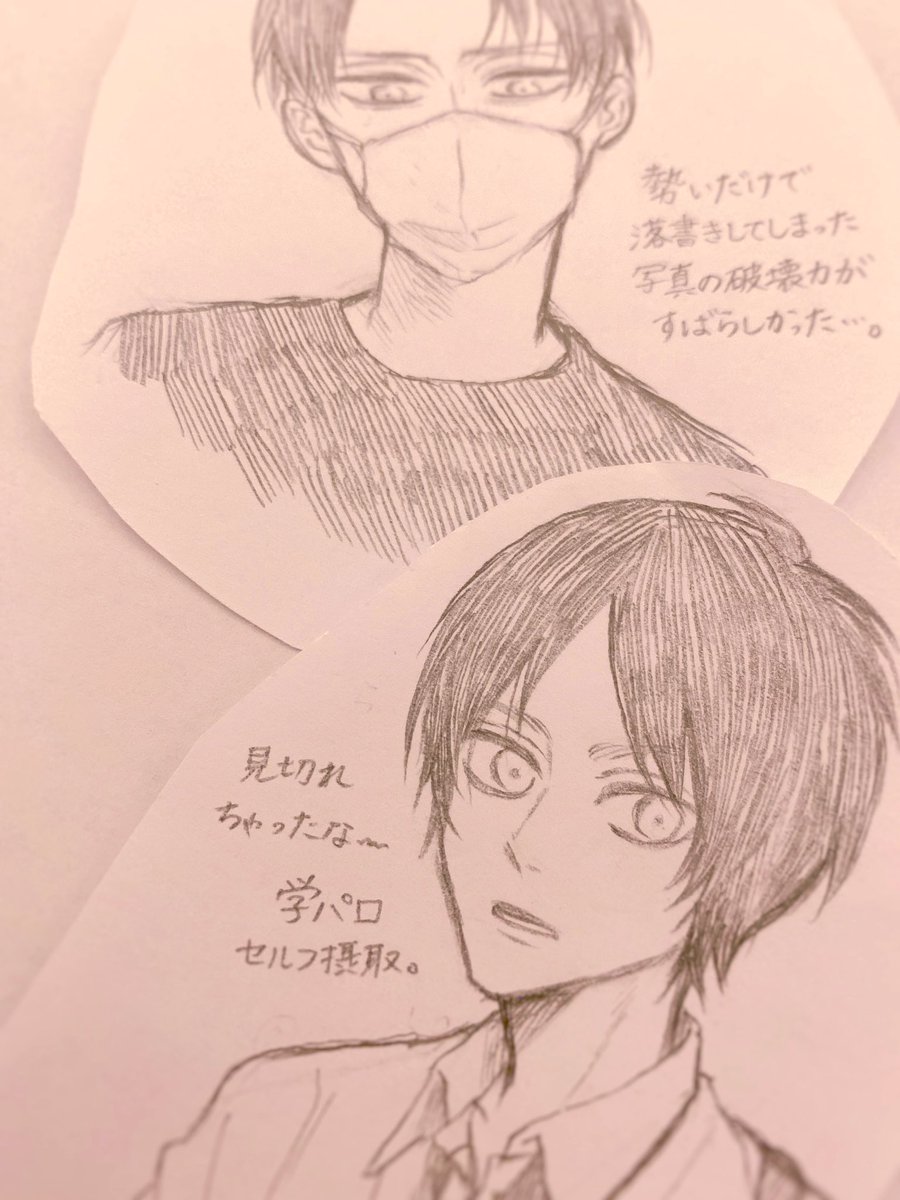 勢いだけで
落書きしてしまった
写真の破壊力が
すばらしかった…。
見切れ
ちゃったな〜
学パロ
セルフ摂取。